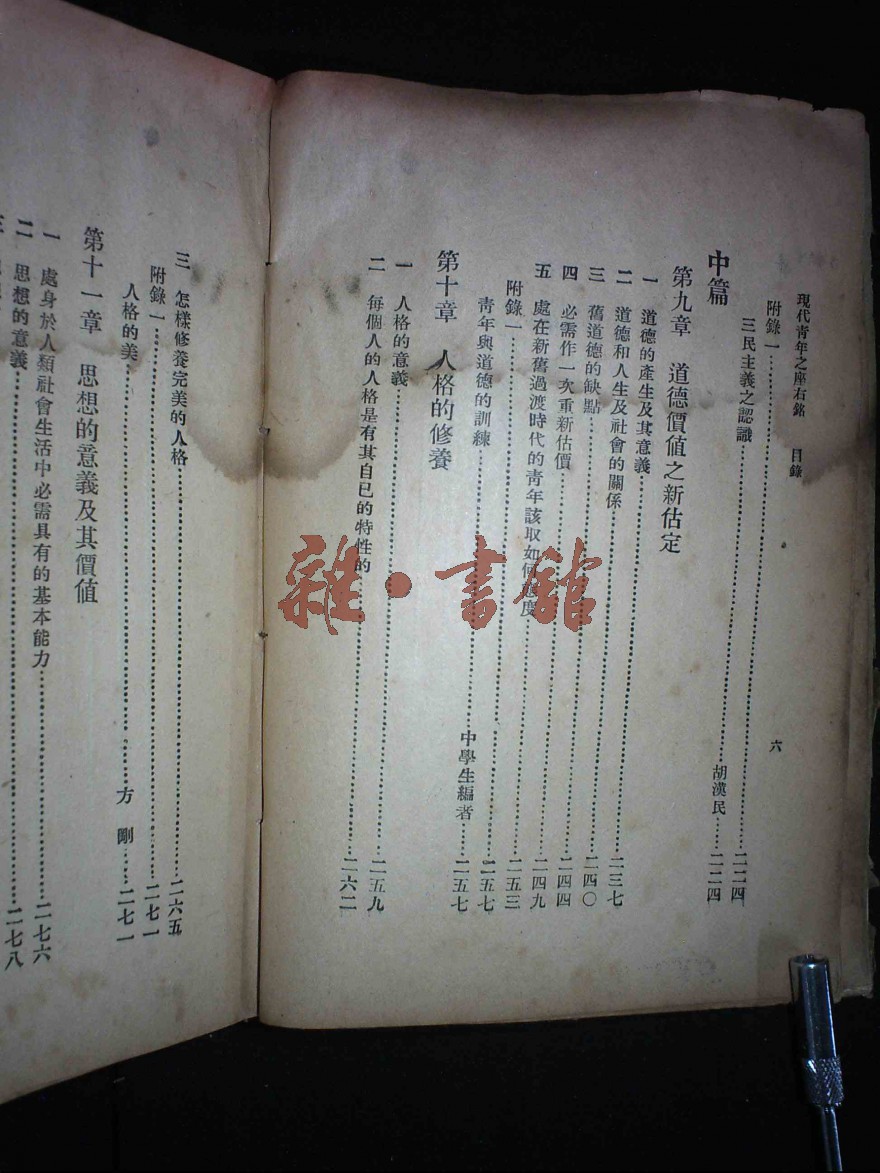 現代青年之座右銘 目錄 六
附錄一……二二四
三民主義之認識……胡漢民……二二四
中篇
第九章 道德價值之新估定
一 道德的產生及其意義……二三七
二 道德和人生及社會的關係……二四〇
三 舊道德的缺點……二四四
四 必需作一次重新估價……二四九
五 處在新舊過渡時代的青年該取如何態度……二五三
附錄一……二五七
青年與道德的訓練……中學生編者……二五七
第十章 人格的修養
一 人格的意義……二五九
二 每個人的人格是有其自己的特性的……二六二
三 怎樣修養完美的人格……二六五
附錄一……二七一
人格的美……方 剛……二七一
第十一章 思想的意義及其價值
一 處身於人類社會生活中必需具有的基本能力……二七六
二 思想的意義……二七八
雜·書館